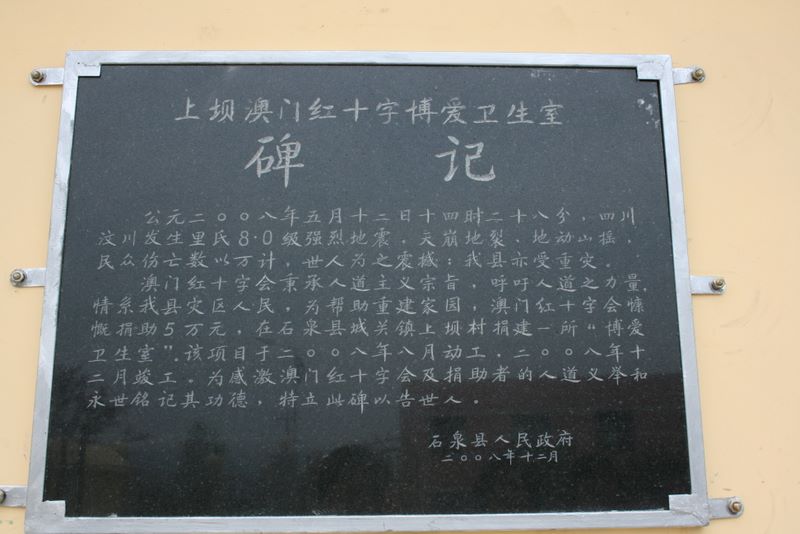 上坝澳门红十字博爱卫生室
碑记
公元二〇〇八年五月十二日十四时二十八分，四川
汶川发生里氏8·0级强烈地震，天崩地裂、地动山摇，
民众伤亡数以万计，世人为之震撼；我县亦受重灾。
澳门红十字会秉承人道主义宗旨，呼吁人道力量，
情系我县灾区人民，为帮助重建家园，澳门红十字会慷
慨捐助5万元，在石泉县城关镇上坝村捐建一所“博爱
卫生室”。该项目于二〇〇八年八月动工，二〇〇八年十
二月竣工。为感激澳门红十字会及捐助者的人道义举和
永世铭记其功德，特立此碑以告世人。
石泉县人民政府
二〇〇八年十二月